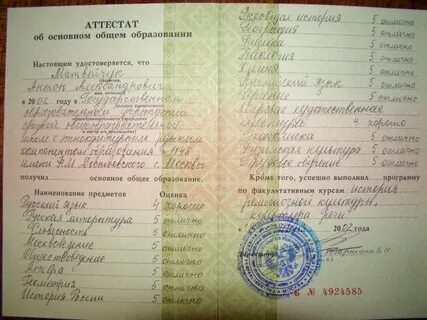 АТТЕСТАТ
ОБ ОСНОВНОМ ОБЩЕМ ОБРАЗОВАНИИ
Настоящим удостоверяется, что
Матвейчук
Антон Александрович
в 2002 году в Государственном
образовательном учреждении
школе с этнокультурным русским
компонентом образования № 1148
имени Ф.М. Достоевского г. Москвы
получил основное общее образование.
Наименование предметов Оценка
Русский язык 4 хорошо
Русская литература 5 отлично
Словесность 5 отлично
Москвоведение 5 отлично
Обществоведение 5 отлично
Алгебра 5 отлично
Геометрия 5 отлично
История России 5 отлично
Всеобщая история 5 отлично
География 5 отлично
Физика 5 отлично
Биология 5 отлично
Химия 5 отлично
Английский язык 5 отлично
5 отлично
Мировая художественная
4 хорошо
Экономика 5 отлично
Физическая культура 5 отлично
Трудовое обучение 5 отлично
Кроме того, успешно выполнил программу
по факультативным курсам история
религиозной культуры,
культура речи
2002 г.
Б № 4924585